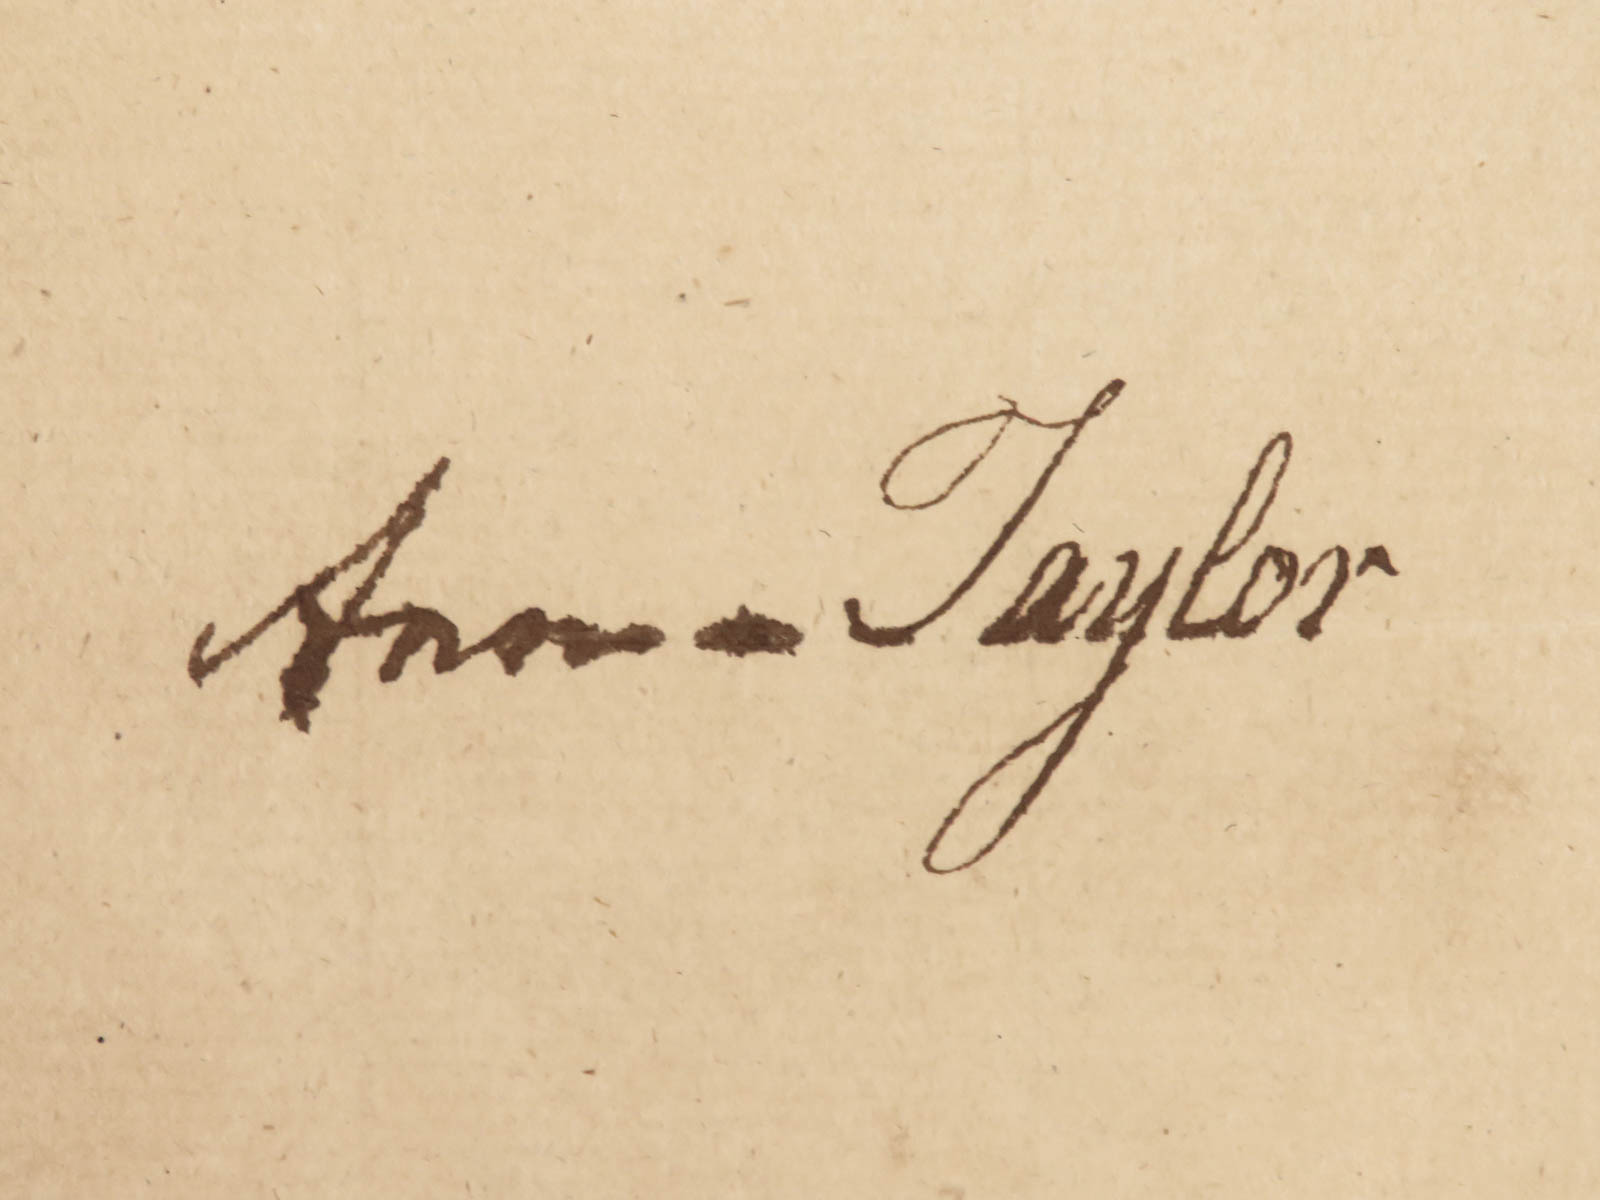 Ann - Taylor